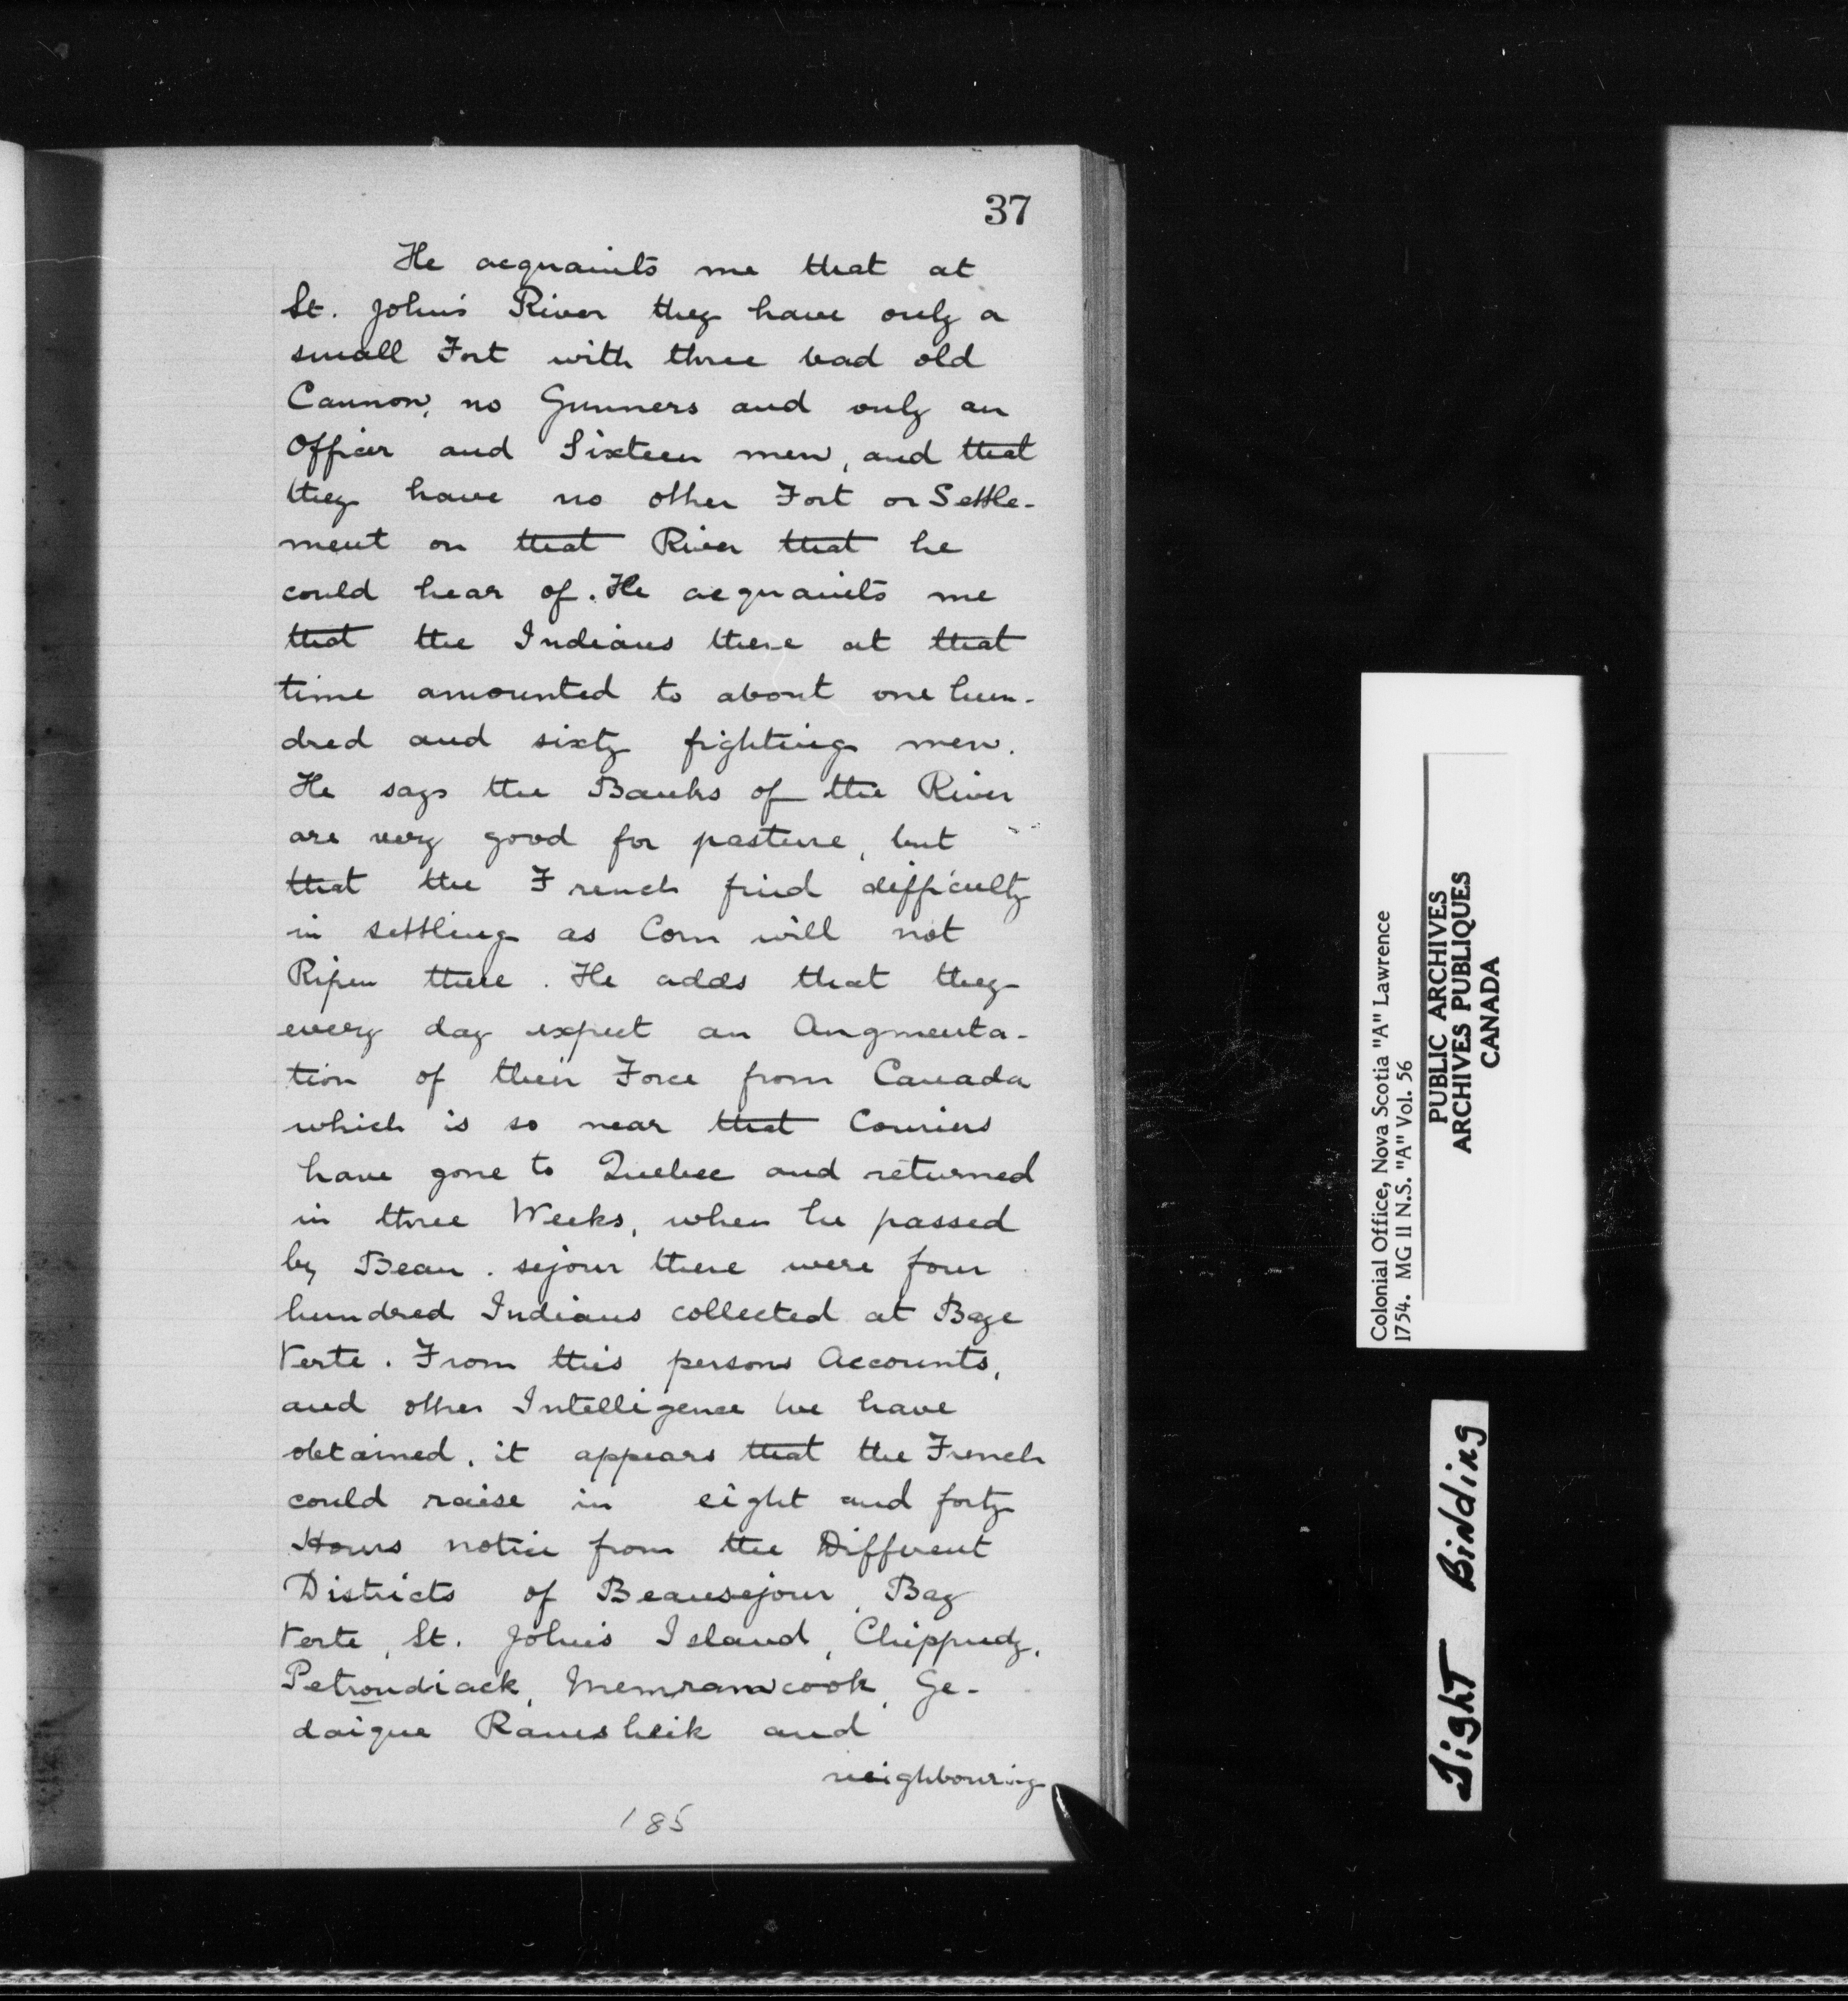 37
He acquaints me that at
St. John's River they have only a
small Fort with three bad old
Cannon, no Gunners and only an
Officer and Sixteen men, and that
they have no other Fort or Settle-
ment on that River that he
could hear of. He acquaints me
that the Indians there at that
time amounted to about one hun-
dred and sixty fighting men.
He says the Banks of the River
are very good for pasture, but
that the French find difficulty
in settling as Corn will not
Ripen there. He adds that they
every day expect an Augmenta-
tion of their Force from Canada
which is so near that Couriers
have gone to Quebec and returned
in three Weeks, when he passed
by Beau. sejour there were four
hundred Indians collected at Baye
Verte. From this persons Accounts,
and other Intelligence we have
obtained, it appears that the French
could raise in eight and forty
Hours notice from the Different
Districts of Beausejour, Bay
Verte, St. John's Island, Chippudy,
Petroudiack, Memramcook, Ge-
daique Ramsheik and
neighbouring
185
Colonial Office, Nova Scotia "A" Lawrence
1754. MG 11 N.S. "A" Vol. 56
PUBLIC ARCHIVES
ARCHIVES PUBLIQUES
CANADA
Tight Binding